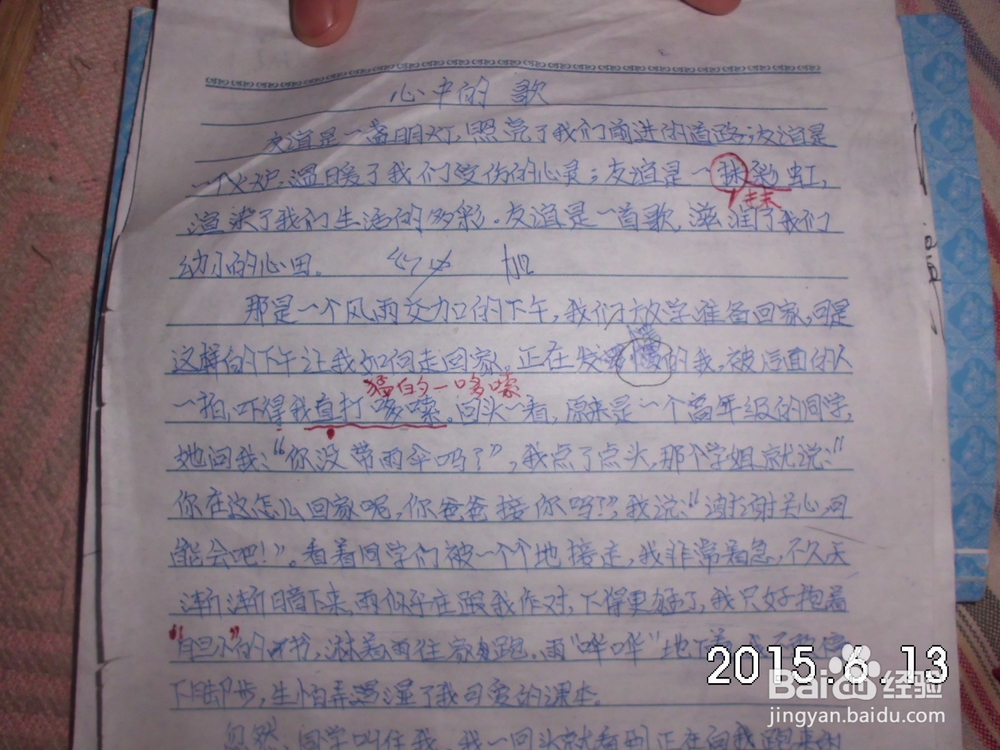 心中的歌
友谊是一盏明灯,照亮了我们前进的道路;友谊是
一个火炉,温暖了我们受伤的心灵;友谊是一抹彩虹,
抹
渲染了我们生活的多彩。友谊是一首歌,滋润了我们
幼小的心田。
加
那是一个风雨交加的下午,我们放学准备回家,可是
这样的下午让我如何走回家。正在发愣的我,被后面的人
猛的一哆嗦
一拍,吓得我直打哆嗦。回头一看,原来是一个高年级的同学,
她问我:“你没带雨伞吗?”,我点了点头,那个学姐就说:“
你在这怎么回家呢,你爸爸接你吗!?”我说:“谢谢关心,可
能会吧!”。看着同学们被一个个地接走,我非常着急,不久天
渐渐暗下来,雨似乎在跟我作对,下得更猛了,我只好抱着
“胆小”的书,淋着雨往家里跑,雨“哗哗”地下着
下脚步,生怕弄湿了我可爱的课本。
忽然,同学叫住我,我一回头就看到正在向我跑来的
2015.6.13
Baidu经验
jingyan.baidu.com